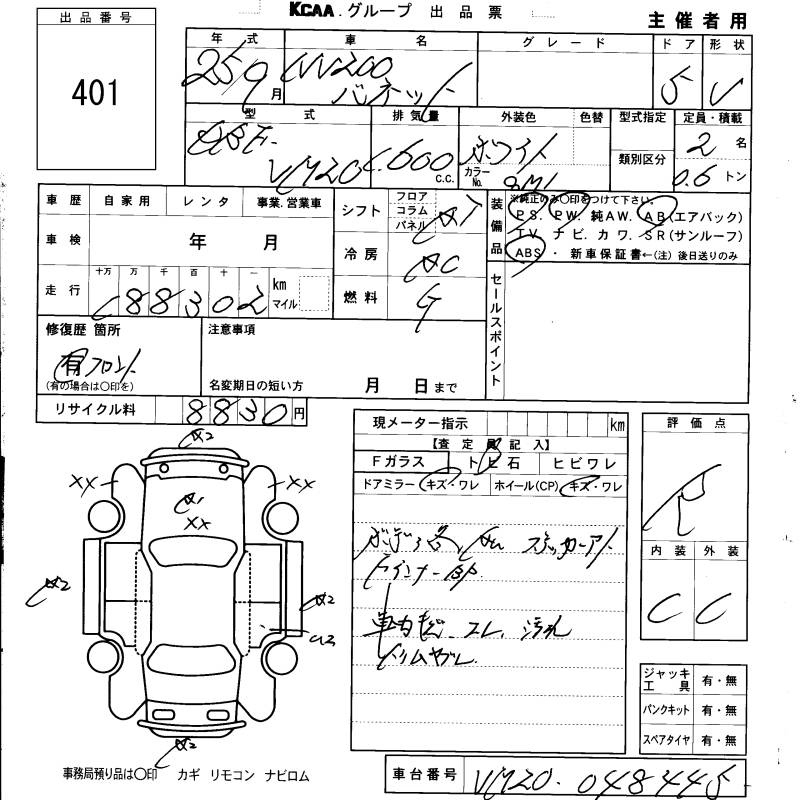 KCAA.グループ 出品票
主催者用
出品番号
401
年式 車名 グレード ドア 形状
25/9月 NV200 バネット 5 V
型式 排気量 外装色 色替 型式指定 定員・積載
DBF-VM20 1,600 C.C. ホワイト 類別区分 2名
カラーNo. QM1 0.6トン
車歴 自家用 レンタ 事業.営業車
車検 年 月
十万 万 千 百 十 一
走行 188302 km マイル
シフト フロア コラム パネル AT
冷房 AC
燃料 G
装備品 ※純正のみ〇印をつけて下さい。
PS. PW. 純AW. AB(エアバック)
TV ナビ. カワ. SR(サンルーフ)
ABS ・ 新車保証書←(注)後日送りのみ
セールスポイント
修復歴 箇所
有 フロント
(有の場合は〇印を)
注意事項
名変期日の短い方 月 日まで
リサイクル料 8830円
現メーター指示 km
【査定員記入】
Fガラス トビ石 ヒビワレ
ドアミラー キズ・ワレ ホイール(CP) キズ・ワレ
評価点
R
内装 外装
C C
A2
XX XX
A1
XX
A2 A2
U2
A2
ボディ各 AU ステッカーアト
車内 キズ コレ 汚れ
ジャッキ工具 有・無
パンクキット 有・無
スペアタイヤ 有・無
事務局預り品は〇印 カギ リモコン ナビロム
車台番号 VM20-048445